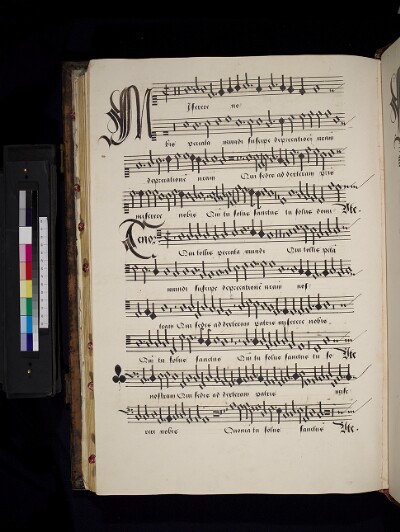 Miserere no-
bis peccata mundi suscipe deprecationē nram
deprecationē nram Qui sedes ad dexteram pris
miserere nobis Qm̄ tu solus sanctus tu solus domi Vte.
Teno: Qui tollis peccata mundi Qui tollis pctā
mundi suscipe deprecationē nram nos-
tram Qui sedes ad dexteram patris miserere nobis
Qm̄ tu solus sanctus Qm̄ tu solus sanctus tu so Vte
nostram Qui sedes ad dexteram patris mise
rere nobis Quonia tu solus sanctus Vte.